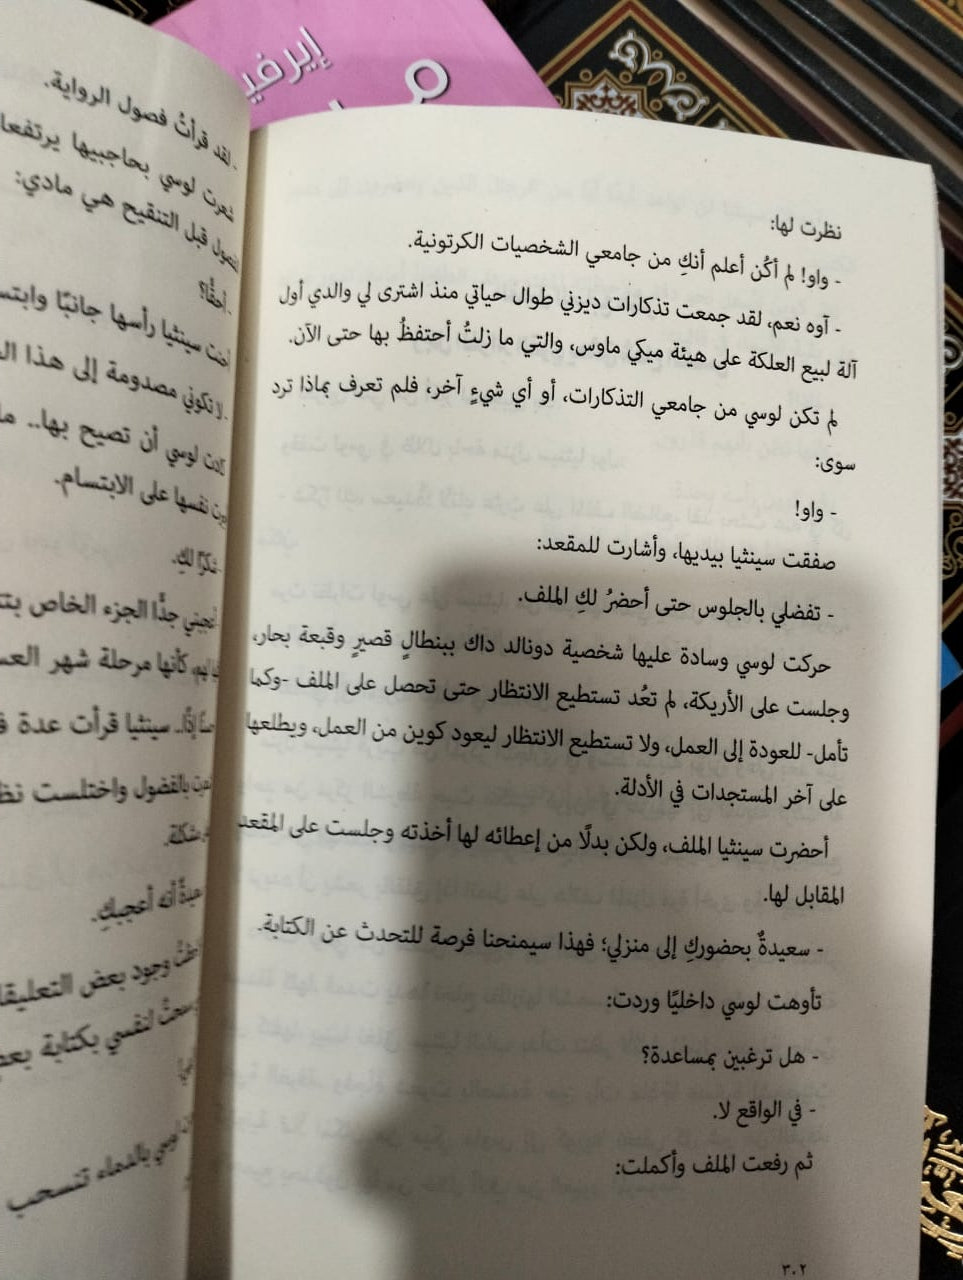 نظرت لها:
- واو! لم أكُن أعلم أنكِ من جامعي الشخصيات الكرتونية.
- آوه نعم، لقد جمعت تذكارات ديزني طوال حياتي منذ اشترى لي والدي أول
آلة لبيع العلكة على هيئة ميكي ماوس، والتي ما زلتُ أحتفظُ بها حتى الآن.
لم تكن لوسي من جامعي التذكارات، أو أي شيءٍ آخر، فلم تعرف بماذا ترد
سوى:
- واو!
صفقت سينثيا بيديها، وأشارت للمقعد:
- تفضلي بالجلوس حتى أحضرُ لكِ الملف.
حركت لوسي وسادة عليها شخصية دونالد داك ببنطالٍ قصيرٍ وقبعة بحار،
وجلست على الأريكة، لم تعُد تستطيع الانتظار حتى تحصل على الملف -وكما
تأمل- للعودة إلى العمل، ولا تستطيع الانتظار ليعود كوين من العمل، ويطلعها
على آخر المستجدات في الأدلة.
أحضرت سينثيا الملف، ولكن بدلًا من إعطائه لها أخذته وجلست على المقعد
المقابل لها.
- سعيدةٌ بحضوركِ إلى منزلي؛ فهذا سيمنحنا فرصة للتحدث عن الكتابة.
تأوهت لوسي داخليًا وردت:
- هل ترغبين بمساعدة؟
- في الواقع لا.
ثم رفعت الملف وأكملت:
٣٠٢
- لقد قرأتُ فصول الرواية.
شعرت لوسي بحاجبيها يرتفعا
قبل التنقيح هي مادي:
- أحقًّا؟
سينثيا رأسها جانبًا
- لا تكوني مصدومة إلى هذا
كادت لوسي أن تصيح بها..
نفسها على الابتسام.
- شكرًا لكِ.
جدًّا الجزء الخاص
كأنها مرحلة شهر
سينثيا قرأت عدة
بالفضول واختلست
أنه أعجبكِ.
وجود بعض
لنفسي بكتابة
لوسي بالدماء تنسحب
إيرفي